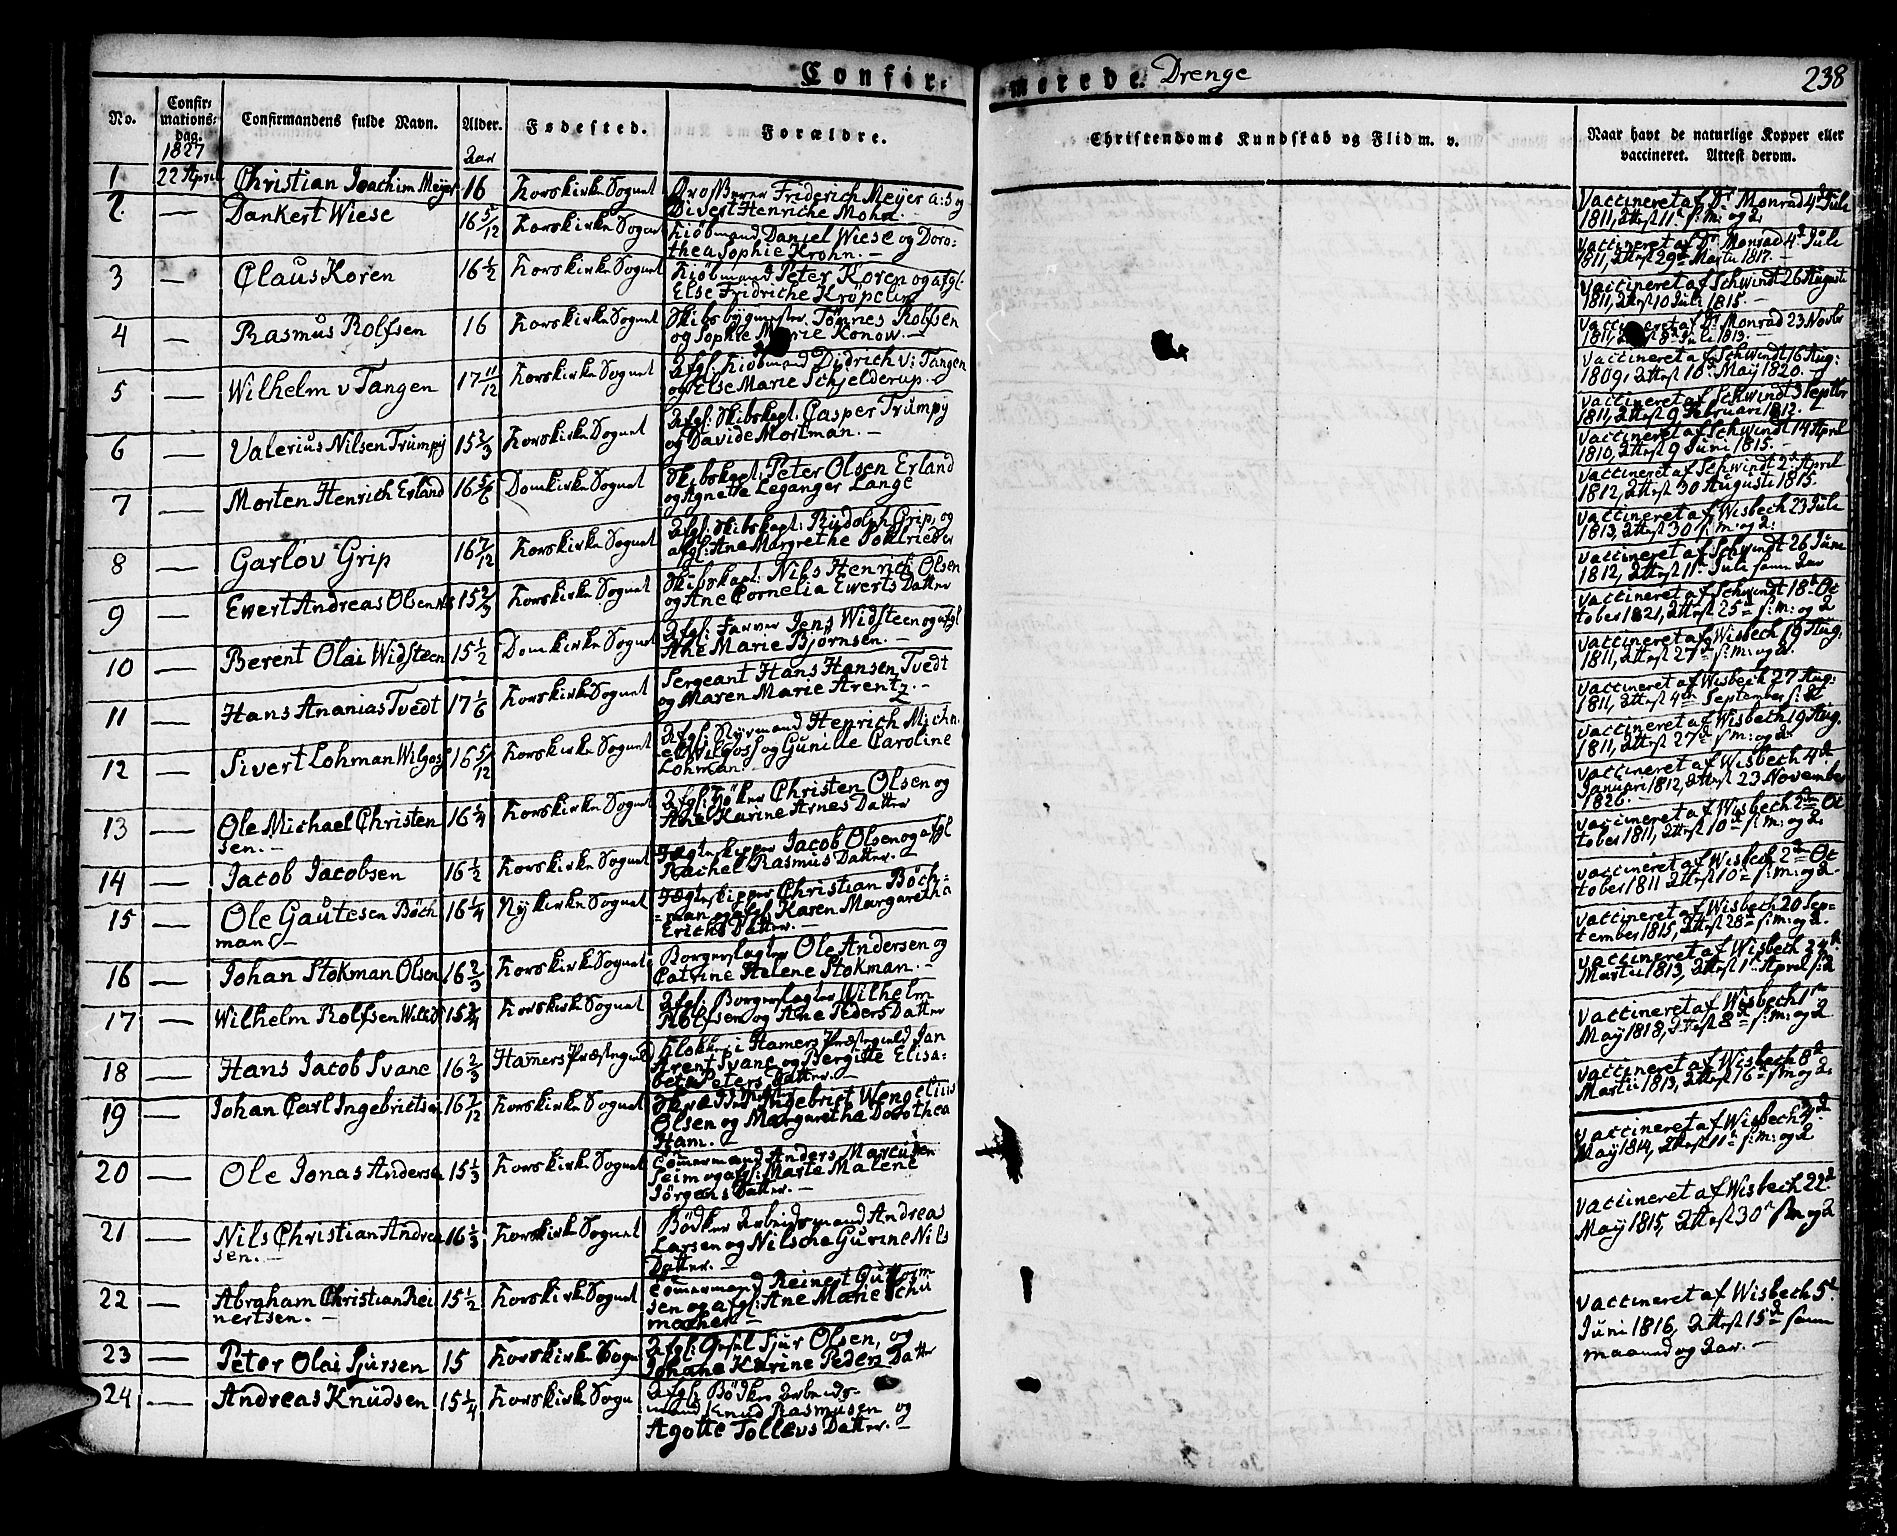 Confir-
merede Drenge
238
No.
Confir-
mations-
dag.
1827
Confirmandens fulde Navn.
Alder.
Aar
Fødested.
Forældre.
Christendoms Kundskab og Flid m. v.
Naar havt de naturlige Kopper eller
vaccineret. Attest derom.
1 22 April Christian Joachim Meyer 16 Korskirke Sognet
Divert Henriche Mohr.
Vaccineret af Dr Monrad 4d Juli
1811, Attest 11 s: M: og A
2 — Dankert Wiese 16 5/12 Korskirke Sognet Kiöbmand Daniel Wiese og Doro-
thea Sophie Krohn. —
Vaccineret af Dr Monrad 4d Juli
1811, Attest 29d Martii 1817. —
3 — Claus Koren 16 1/2 Korskirke Sognet Kiöbmand Peter Koren og afgl.
Else Fridriche Kröpelin
Vaccineret af Schwindt 26 Augusti
1811, Attest 10 Juli 1815. —
4 — Rasmus Rolfsen 16 Korskirke Sognet Skibsbygmester Tönnes Rolfsen
og Sophie Marie Konow. —
Vaccineret af Dr Monrad 23 Novbr
1811, Attest 8 Juli 1813.
5 — Wilhelm v Tangen 17 11/12 Korskirke Sognet Afgl: Kiöbmand Didrich v: Tangen
og Else Marie Schjelderup. —
Vaccineret af Schwindt 16 Aug:
1809, Attest 10 May 1820. —
6 — Valerius Nilsen Trumpy 15 2/3 Korskirke Sognet Afgl: Skibskapt. Casper Trumpy
og Davide Mortman. —
Vaccineret af Schwindt 3 Septbr
1811, Attest 9 Februari 1812. —
7 — Morten Henrich Erland 16 5/6 Domkirke Sognet Skibskapt: Peter Olsen Erland
og Agnette Leganger Lange
Vaccineret af Schwindt 14 April
1810, Attest 9 Juni 1815. —
8 — Garlov Grip 16 7/12 Korskirke Sognet Afgl: Skibskapt: Rudolph Grip, og
afgl: Ane Margrethe Sohlrieder
Vaccineret af Schwindt 2d April
1812, Attest 30 Augusti 1815.
9 — Ewert Andreas Olsen 15 2/3 Korskirke Sognet Skibskapt: Nils Henrich Olsen
og Ane Cornelia Ewerts Datter
Vaccineret af Wisbech 23 Juli
1813, Attest 30 s: m: og A:
10 — Berent Olai Widsteen 15 1/2 Domkirke Sognet Afgl: Farver Jens Widsteen og afgl
Ane Marie Bjørnsen. —
Vaccineret af Schwindt 26 Juni
1812, Attest 11 Juli samme Aar
11 — Hans Ananias Tvedt 17 1/6 Korskirke Sognet Sergeant Hans Hansen Tvedt
og Maren Marie Arentz. —
Vaccineret af Schwindt 18d Oc
tober 1821, Attest 25 s: m: og A
12 — Sivert Lohman Wilgoss 16 5/12 Korskirke Sognet Afgl: Styrmand Henrich Micha
el Wilgoss og Gunille Caroline
Lohman. —
Vaccineret af Wisbech 19 Aug.
1811, Attest 27d s: m: og A.
13 — Ole Michael Christen
sen. — 16 1/4 Korskirke Sognet Afgl: Høker Christen Olsen og
Ane Karine Arnes Datter
Vaccineret af Wisbech 27 Aug:
1811, Attest 4de September s: A
14 — Jacob Jacobsen 16 1/2 Korskirke Sognet Jægteskipper Jacob Olsen og afgl
Rachel Rasmus Datter. —
Vaccineret af Wisbech 19 Aug.
1811, Attest 27d s: m: og A.
15 — Ole Gautesen Böch
man — 16 1/4 Nykirke Sognet Jægteskipper Christian Böch-
man og afgl Karen Margaretha
Erichs Datter. —
Vaccineret af Wisbech 4d
Januari 1812, Attest 23 November
1826. —
16 — Johan Stokman Olsen 16 2/3 Korskirke Sognet Borgerslagter Ole Andersen og
Catrine Helene Stokman. —
Vaccineret af Wisbech 2d Oc
tober 1811, Attest 10d s: m: og A.
17 — Wilhelm Rolfsen 15 3/4 Korskirke Sognet Afgl: Borgerslagter Wilhelm
Rolfsen og Ane Peders Datter
Vaccineret af Wisbech 2d Oc
tober 1811 Attest 10 s: m: og A
18 — Hans Jacob Svane 16 2/3 Hamers Præstegield Klokker i Hamers Præstegield Jan
Arent Svane og Bergitte Elisa-
beth Peters Datter. —
Vaccineret af Wisbech 20 Sep-
tember 1815, Attest 28 s: m: og A.
19 — Johan Carl Ingebrictsen 16 7/12 Korskirke Sognet Ingebrict Wengelius
Olsen og Margaretha Dorothea
Ham. —
Vaccineret af Wisbech 24d
Martii 1813, Attest 1 April s: A
20 — Ole Jonas Andersen 15 1/3 Korskirke Sognet Anders Marcusen
Seim og afgl: Marte Malene
Jörgens Datter. —
Vaccineret af Wisbech 1
May 1818, Attest 8d s: m: og A
21 — Nils Christian Andrea
sen. — 16 1/3 Korskirke Sognet Bödker Arbeidsmand Andreas
Larsen og Nilsche Gurine Nils
Datter. —
Vaccineret af Wisbech 8d
Martii 1813, Attest 16 s: m og A
22 — Abraham Christian Rei
nertsen. — 15 1/2 Korskirke Sognet Reinert Guttorm
sen og afgl: Ane Marie Schu
macher —
Vaccineret af Wisbech 3d
May 1814, Attest 11 s: m: og A
23 — Peter Olai Sjursen 15 Korskirke Sogn Afgl: Sjur Olsen, og
Johane Karine Peders Datter
Vaccineret af Wisbech 22d
May 1815, Attest 30 s m og A
24 — Andreas Knudsen 15 1/4 Korskirke Sogn Afgl: Bödker Arbeids-
mand Knud Rasmusen og
Agotte Tollevs Datter. —
Vaccineret af Wisbech 5d
Juni 1816, Attest 15d samme
maaned og Aar. —